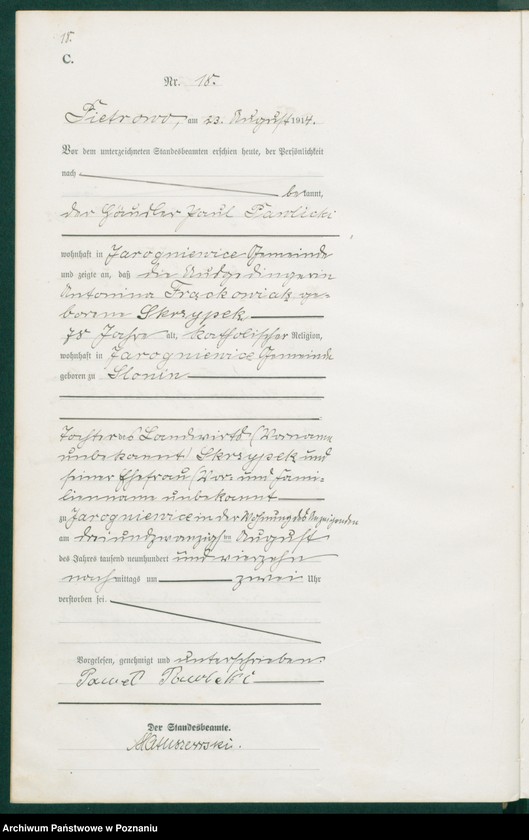 15.
C.
Nr. 15.
Pietrowo, am 23. August 1914.
Vor dem unterzeichneten Standesbeamten erschien heute, der Persönlichkeit
nach
bekannt,
der Häusler Paul Pawlicki
wohnhaft in Jarogniewice Gemeinde
und zeigte an, daß die Ausgedingerin
Antonina Frackowiak ge-
borene Skrzypek
78 Jahre alt, katholischer Religion,
wohnhaft in Jarogniewice Gemeinde
geboren zu Slonin
Tochter des Landwirts (Vorname
unbekannt) Skrzypek und
seiner Ehefrau (Vor- und Fami-
lienname unbekannt
zu Jarogniewice in der Wohnung des Anzeigenden
am dreiundzwanzigsten August
des Jahres tausend neunhundert und vierzehn
nachmittags um zwei Uhr
verstorben sei.
Vorgelesen, genehmigt und unterschrieben.
Paweł Pawlcki
Der Standesbeamte.
Matuszewski.
Archiwum Państwowe w Poznaniu